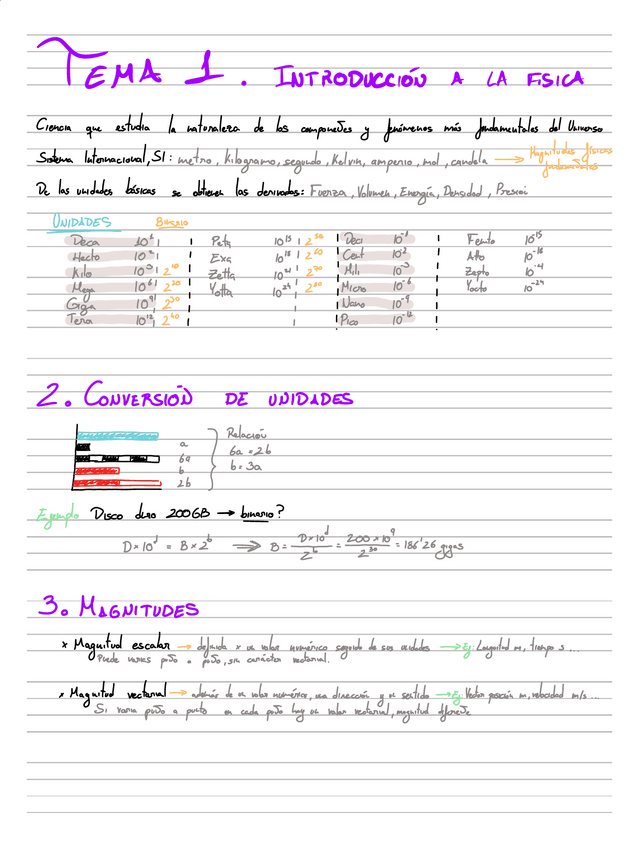 TEMA 1. INTRODUCCIÓN A LA FISICA
Ciencia que estudia la naturaleza de los componentes y fenómenos más fundamentales del Universo
Sistema Internacional, SI: metro, Kilogramo, segundo, Kelvin, amperio, mol, candela → Magnitudes físicas fundamentales
De las unidades básicas se obtienen las derivadas: Fuerza, Volumen, Energía, Densidad, Presión
UNIDADES BINARIO
Deca 10^1 Peta 10^15 2^50 Deci 10^-1 Femto 10^-15
Hecto 10^2 Exa 10^18 2^60 Cent 10^-2 Atto 10^-18
Kilo 10^3 2^10 Zetta 10^21 2^70 Mili 10^-3 Zepto
Mega 10^6 2^20 Yotta 10^24 2^80 Micro 10^-6 Yocto 10^-24
Giga 10^9 2^30 Nano 10^-9
Tera 10^12 2^40 Pico 10^-12
2. CONVERSIÓN DE UNIDADES
Relación
a
6a = 2b
6a
b = 3a
b
2b
Ejemplo Disco duro 200GB → binario?
D×10^d = B×2^b ⇒ B = D×10^d / 2^b = 200×10^9 / 2^30 = 186'26 gigas
3. MAGNITUDES
× Magnitud escalar → definida x un valor numérico seguido de sus unidades → Ej: Longitud m, tiempo s...
Puede variar punto a punto, sin carácter vectorial.
× Magnitud vectorial → además de un valor numérico, una dirección y un sentido → Ej: Vector posición m, velocidad m/s...
Si varía punto a punto en cada punto hay un valor vectorial, magnitud diferente